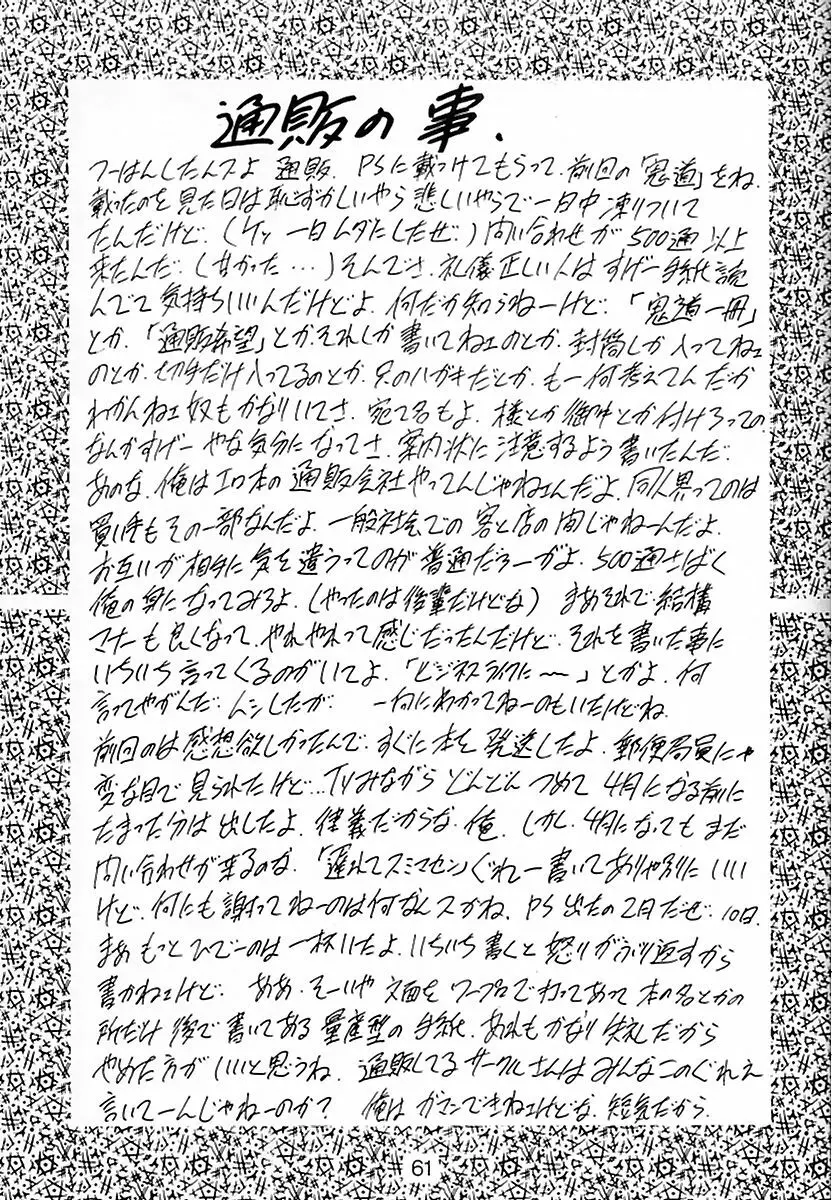 通販の事.
つーはんしたんスよ 通販. PSに載っけてもらって. 前回の「鬼道」をね.
載ったのを見た日は恥ずかしいやら悲しいやらで一日中凍りついて
たんだけど. (ケッ 一日ムダにしたぜ.) 問い合わせが500通以上
来たんだ. (甘かった…) そんでさ. 礼儀正しい人はすげー手紙読
んでて気持ちいいんだけどよ. 何だか知らねーけど. 「鬼道一冊」
とか. 「通販希望」とか. それしか書いてねェのとか. 封筒しか入ってねェ
のとか. 切手だけ入ってるのとか. 只のハガキだとか. もー何考えてんだか
わかんねェ奴もかなりいてさ. 宛て名もよ. 様とか御中とか付けろっての.
なんかすげー やな気分になってさ. 案内状に注意するよう書いたんだ.
あのな. 俺はエロ本の通販会社やってんじゃねェんだよ. 同人界ってのは
買い手もその一部なんだよ. 一般社会での客と店の間じゃねーんだよ.
お互いが相手に気を遣うってのが普通だろーがよ. 500通さばく
俺の身になってみろよ. (やったのは後輩だけどな) まあそれで結構
マナーも良くなって. やれやれって感じだったんだけど. それを書いた事に
いちいち言ってくるのがいてよ. 「ビジネスライクに〜」とかよ. 何
言ってやがんだ. ムシしたが. 一向にわかってねーのもいたけどね.
前回のは感想欲しかったんで. すぐに本を発送したよ. 郵便局員にゃ
変な目で見られたけど… TVみながら どんどん つめて 4月になる前に
たまった分は出したよ. 律義だからな. 俺. しかし. 4月になってもまだ
問い合わせが来るのな. 「遅れてスミマセン」ぐれー書いてありゃ別にいい
けど. 何にも謝ってねーのは何なんスかね. PS出たの2月だぜ. 10日.
まあ もっとひでーのは一杯いたよ. いちいち書くと怒りがぶり返すから
書かねェけど. ああ. そーいや 文面をワープロで打ってあって 本の名とかの
所だけ後で書いてある量産型の手紙. あれもかなり失礼だから
やめた方がいいと思うね. 通販してるサークルさんはみんなこのぐれェ
言いてーんじゃねーのか? 俺は ガマンできねェけどな. 短気だから.
61